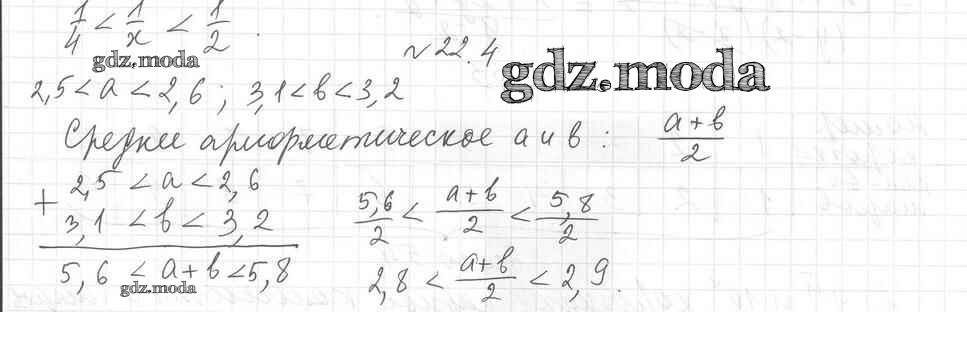 1/4 < 1/x < 1/2.
gdz.moda
№ 22.4
gdz.moda
2,5 < a < 2,6; 3,1 < b < 3,2
Среднее арифметическое a и b: (a+b)/2
+ 2,5 < a < 2,6
3,1 < b < 3,2
5,6 < a+b < 5,8
gdz.moda
5,6/2 < (a+b)/2 < 5,8/2
2,8 < (a+b)/2 < 2,9.